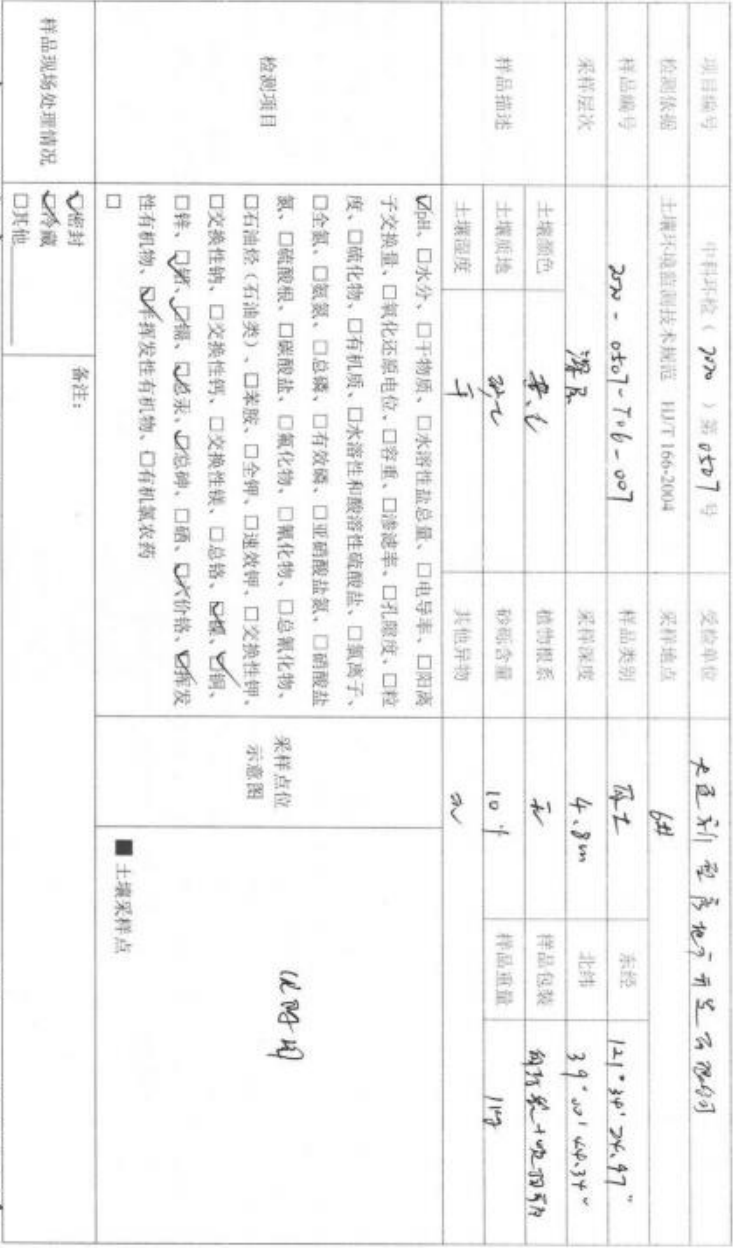 项目编号 中科环检（2020）第0507号 受检单位
检测依据 土壤环境监测技术规范 HJ/T 166-2004 采样地点 6#
样品编号 2020-0507-T06-007 样品类别 东经 121°34'24.97"
采样层次 深层 采样深度 4.8m 北纬 39°00'44.34"
样品描述 土壤颜色 植物根系 无 样品包装
土壤质地 砂砾含量 10% 样品重量 1kg
土壤湿度 干 其他异物 无
检测项目
☑pH、□水分、□干物质、□水溶性盐总量、□电导率、□阳离
子交换量、□氧化还原电位、□容重、□渗滤率、□孔隙度、□粒
度、□硫化物、□有机质、□水溶性和酸溶性硫酸盐、□氯离子、
□全氮、□氨氮、□总磷、□有效磷、□亚硝酸盐氮、□硝酸盐
氮、□硫酸根、□碳酸盐、□氟化物、□氰化物、□总氰化物、
□石油烃（石油类）、□苯胺、□全钾、□速效钾、□交换性钾、
□交换性钠、□交换性钙、□交换性镁、□总铬、☑镍、☑铜、
□锌、☑铅、☑镉、☑总汞、☑总砷、□硒、☑六价铬、☑挥发
性有机物、☑半挥发性有机物、□有机氯农药
□
采样点位
示意图
■ 土壤采样点
样品现场处理情况
☑密封
☑冷藏
□其他
备注：